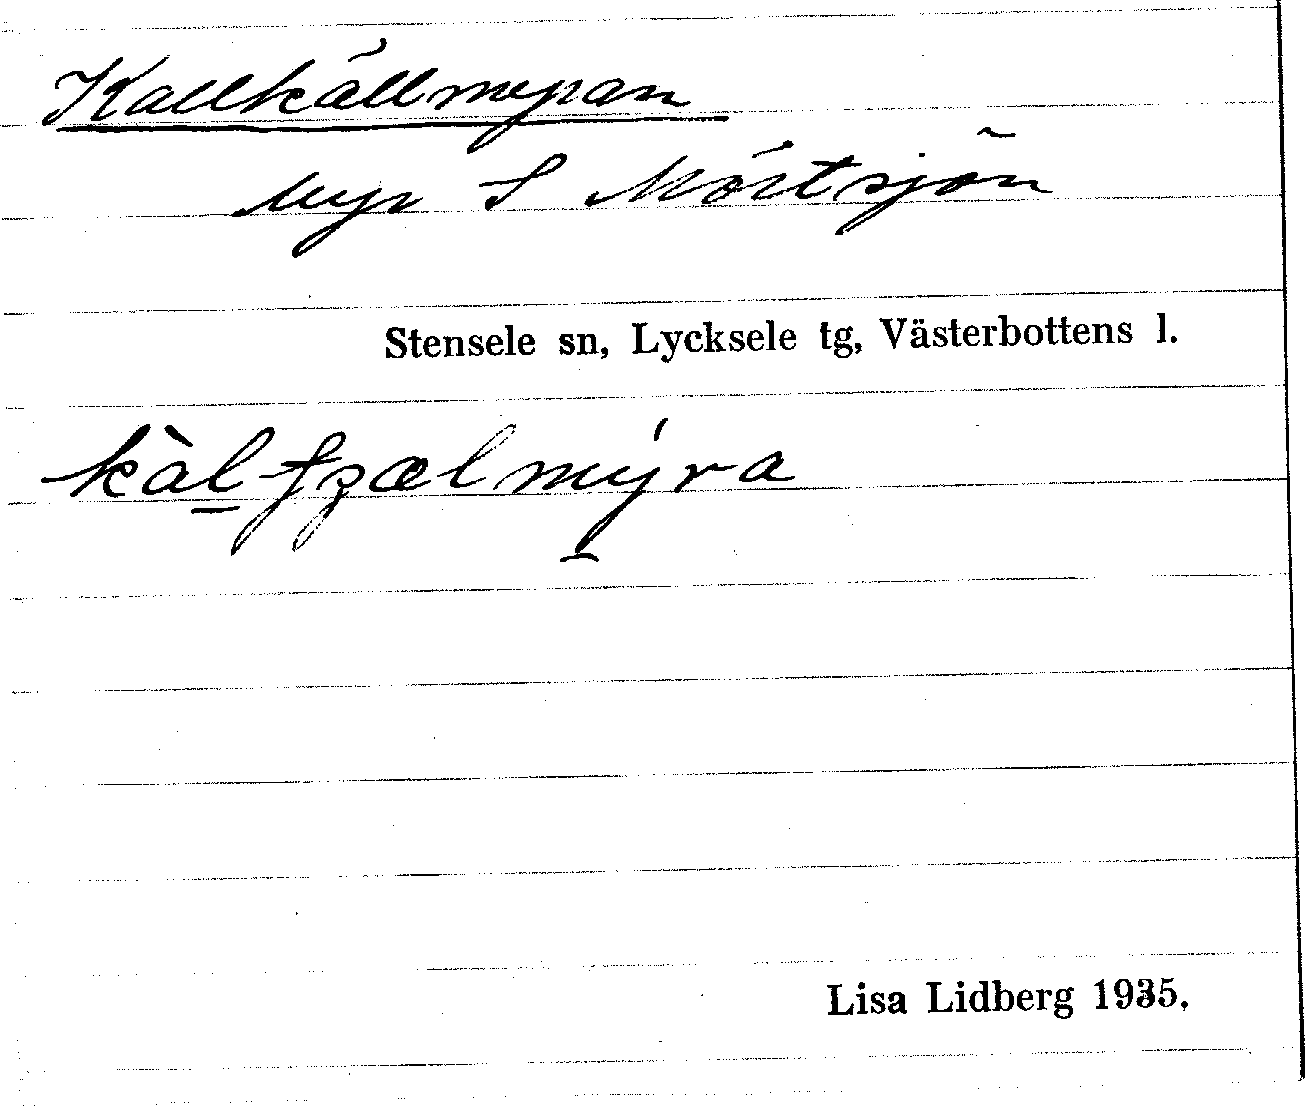 Kallkällmyran
myr S Mörtsjön
Stensele sn, Lycksele tg, Västerbottens l.
kàlʃʒælmýra
Lisa Lidberg 1935.